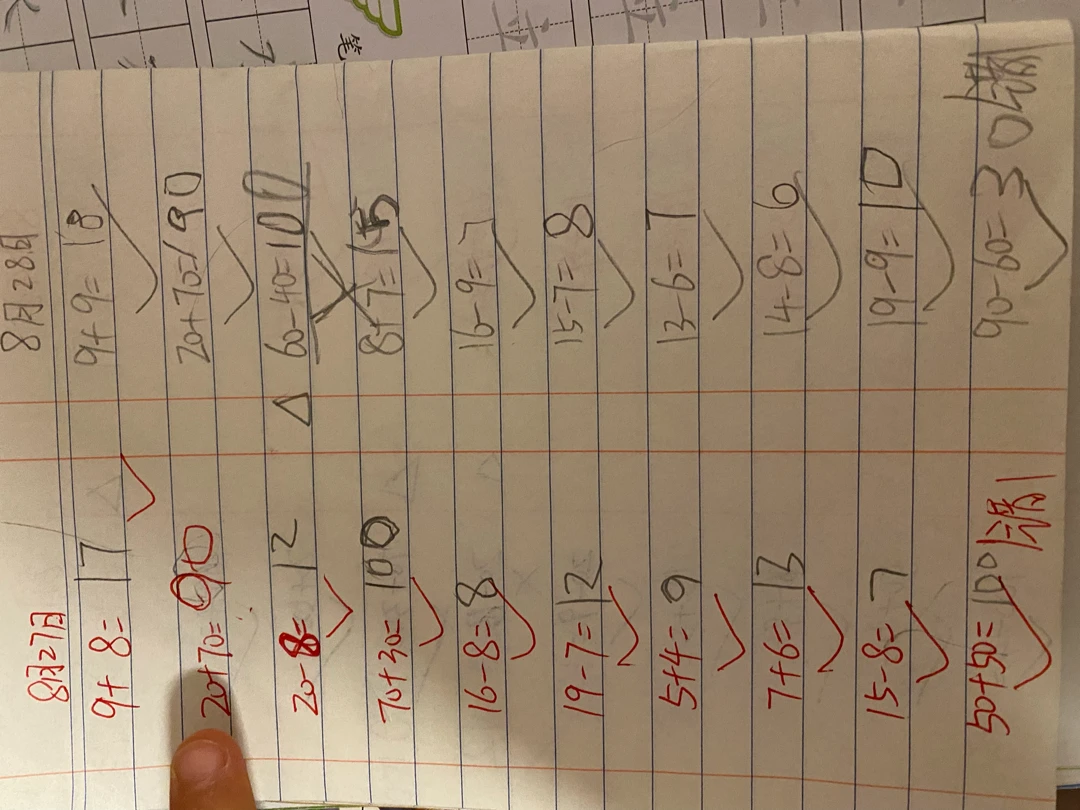 笔
8月27日
9+8=17
20+70=90
20-8=12
70+30=100
16-8=8
19-7=12
5+4=9
7+6=13
15-8=7
50+50=100
8月28日
9+9=18
20+70=90
△ 60-40=100
8+7=15
16-9=7
15-7=8
13-6=7
14-8=6
19-9=10
90-60=30